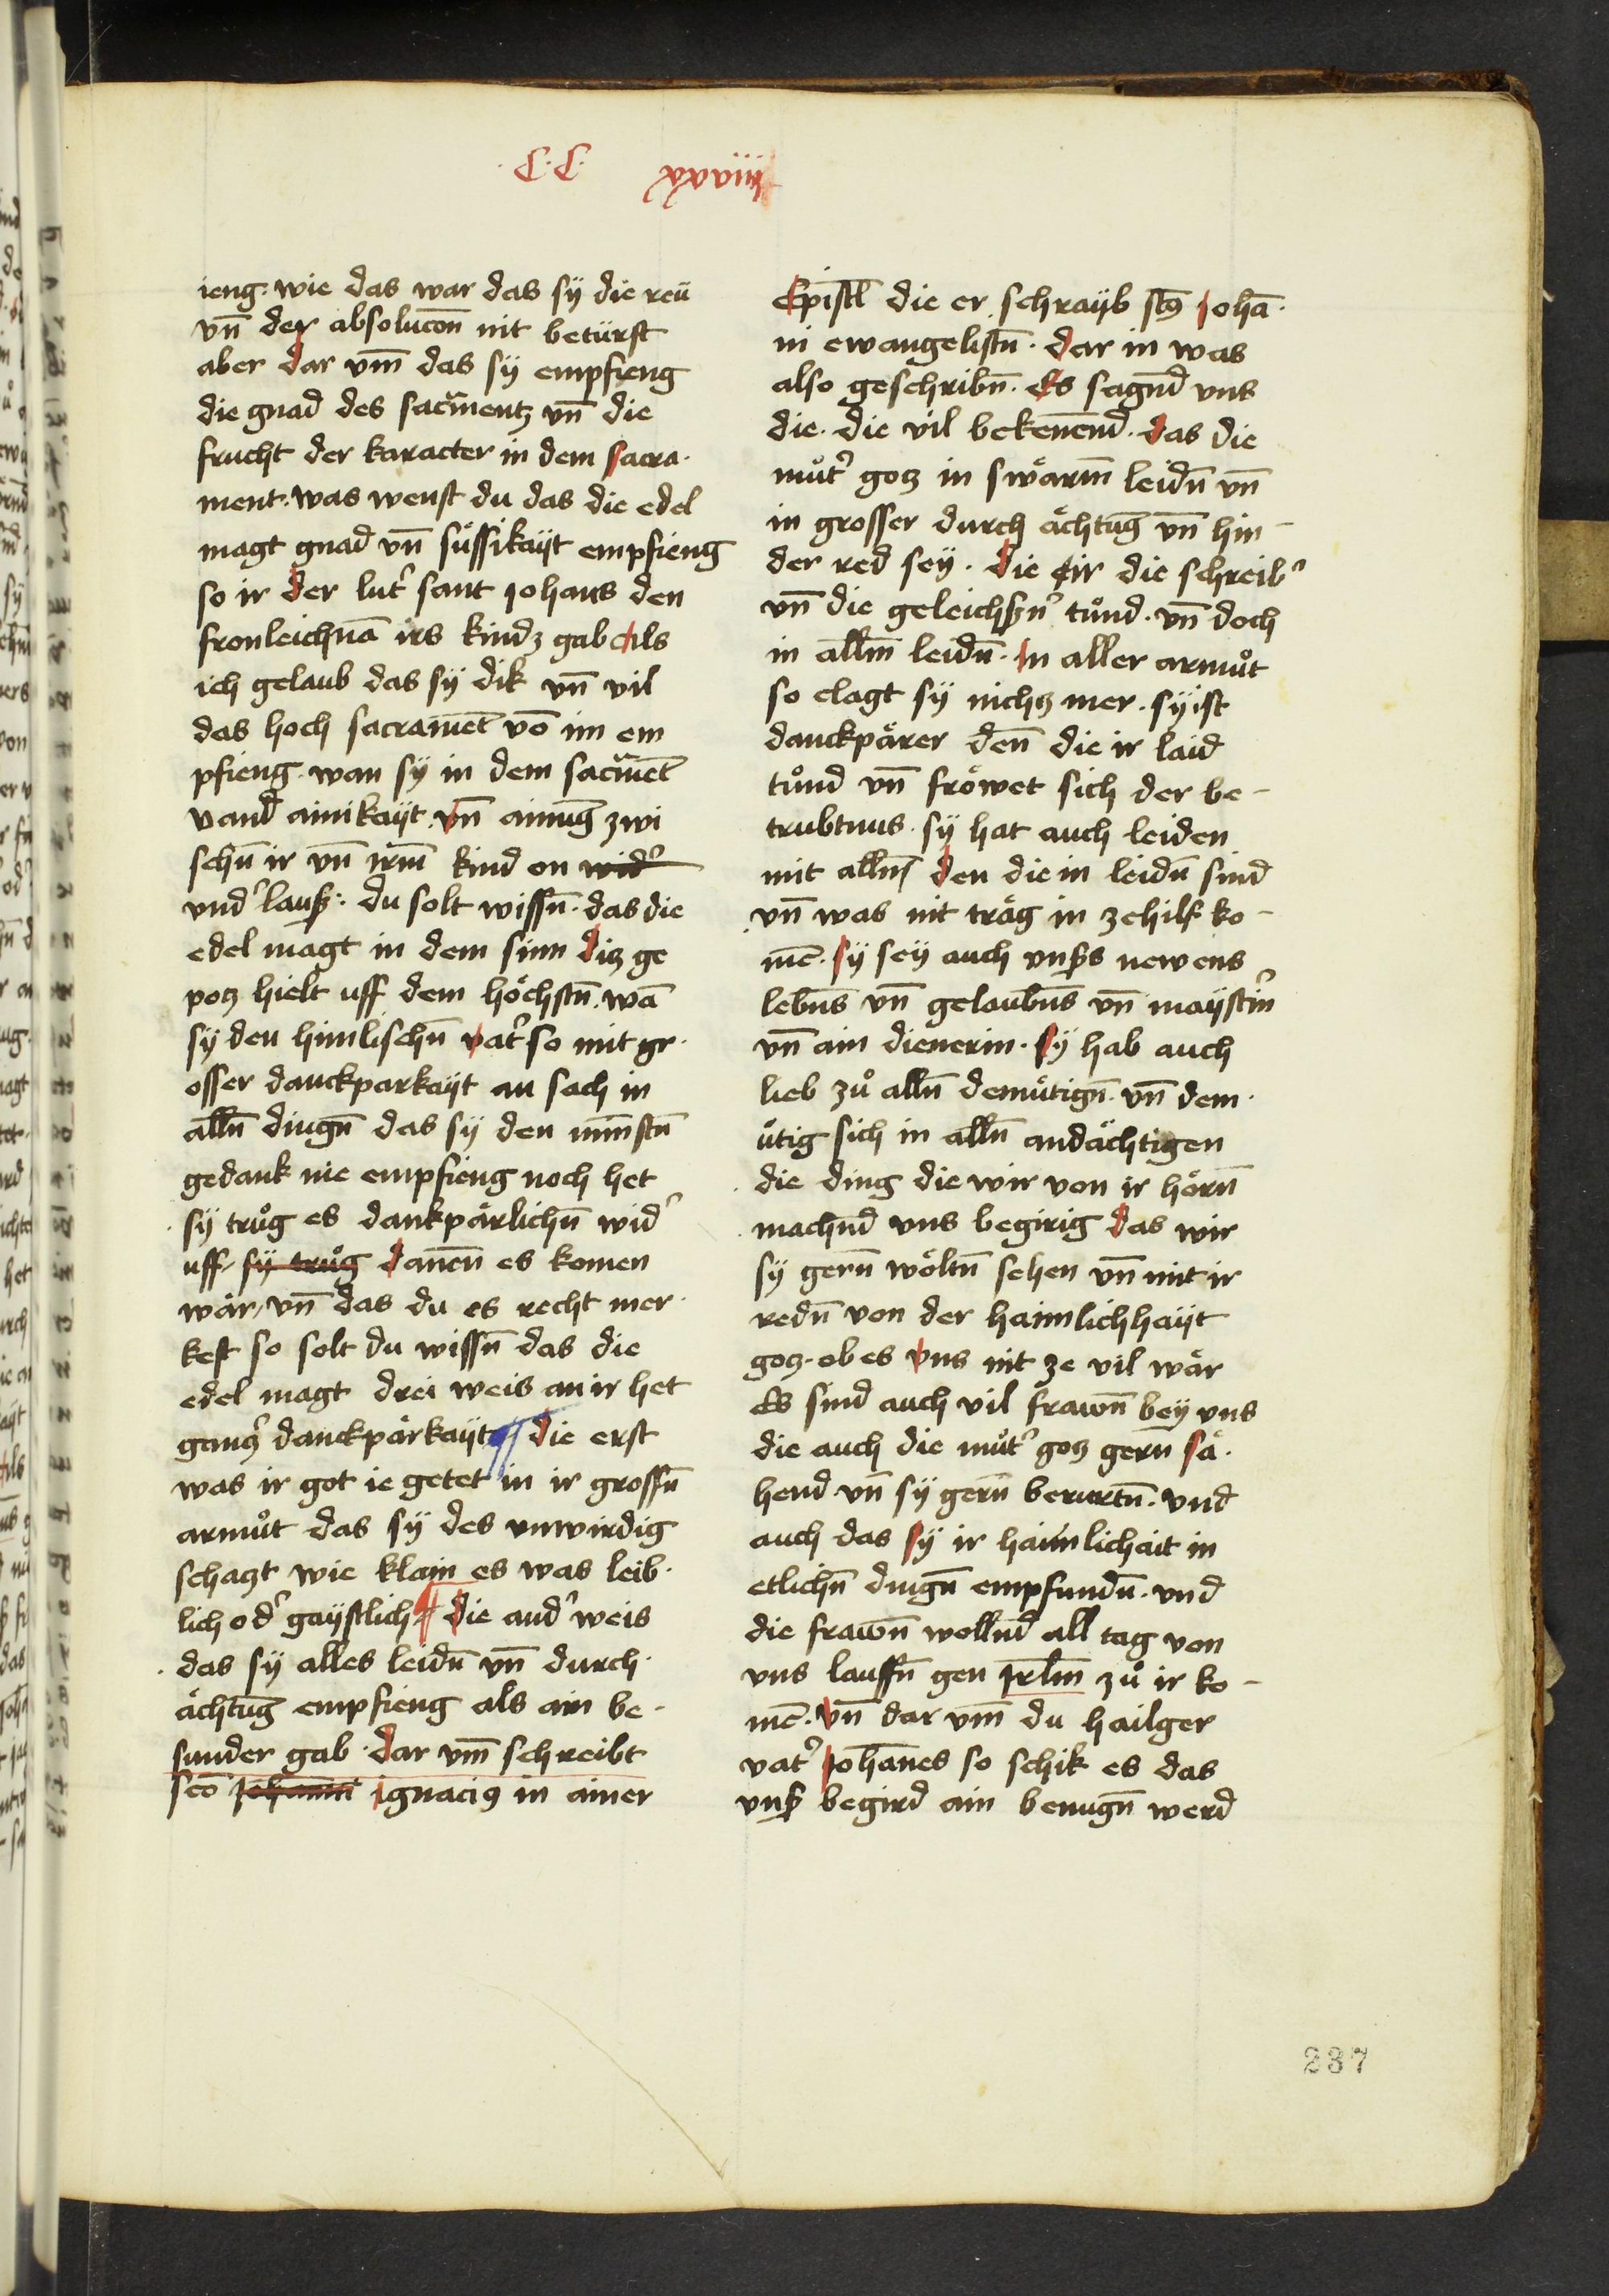 ·C·C· xxxviiij
ieng. wie das war das sÿ die reü
vn̄ der absoluco̅n nit betürft
aber dar vm̄ das sÿ empfieng
die gnad des sac̅mentz vn̄ die
frucht der karacter in dem sacra·
ment. was wenst du das die edel
magt gnad vn̄ süssikaÿt empfieng
so ir der lut᾽ sant Johans den
fronleichnā irs kindz gab Als
ich gelaub das sÿ dik vn̄ vil
das hoch sacramēt vō im em
pfieng. wan sÿ in dem sac̅mēt
vand ainikaÿt. vn̄ ainūg zwi
schn̄ ir vn̄ irm̄ kind on wid᾽
vnd᾽lauß: du solt wissn̄. das die
edel magt in dem sinn diz ge
potz hielt uff dem höchstn̄. wā
sÿ den himlischn̄ vat᾽ so mit gr·
osser danckparkaÿt an sach in
alln̄ dingn̄ das sÿ den minstn̄
gedank nie empfieng noch het
sÿ trůg es dankpärlichn̄ wid᾽
uff sÿ trůg danen̄ es komen
wär, vn̄ das du es recht mer·
kest so solt du wissn̄ das die
edel magt drei weis an ir het
gancz᾽ danckpärkaÿt ¶ die erst
was ir got ie getet in ir grossn̄
armůt das sÿ des vnwirdig
schaczt wie klain es was leib·
lich od᾽ gaÿstlich ¶ die and᾽ weis
das sÿ alles leidn̄ vn̄ durch·
ächtūg empfieng als ain be-
sunder gab. dar vm̄ schreibt
scō Johanni ignaciꝰ in ainer
Epistl̄ die er schraÿb sto Johā·
ni ewangelistn̄. dar in was
also geschribn̄. Es sagnd̄ vns
die. die vil bekenēnd. das die
můt᾽ gotz in swärm̄ leidn̄ vn̄
in grosser durch ächtūg vn̄ hin-
der red seÿ. die ir die schreib᾽
vn̄ die geleichßn᾽ tůnd. vn̄ doch
in allm̄ leidn̄. In aller armůt
so clagt sÿ nichtz mer. sÿ ist
danckpärer den̄ die ir laid
tůnd vn̄ fröwet sich der be-
trubtnus. sÿ hat auch leiden
mit alln̄ den die in leidn̄ sind
vn̄ was nit träg in ze hilf ko-
mē. sÿ seÿ auch vnß̄s newens
lebn̄s vn̄ gelaubn̄s vn̄ maÿst᾽in
vn̄ ain dienerin. sÿ hab auch
lieb zů alln̄ demůtign̄. vn̄ dem·
ůtig sich in alln̄ andächtigen
die ding die wir von ir hörn̄
machnd̄ vns begirig das wir
sÿ gern̄ wöltn̄ sehen vn̄ mit ir
redn̄ von der haimlichhaÿt
gotz. ob es vns nit ze vil wär
Es sind auch vil frawn̄ beÿ vns
die auch die můt᾽ gotz gern sä·
hend vn̄ sÿ gern̄ berurtn̄. vnd
auch das sÿ ir haimlichait in
etlichn̄ dingn̄ empfundn̄. vnd
die frawn̄ wollnd̄ all tag von
vns lauffn̄ gen Jrlm̄ zů ir ko-
mē. vn̄ dar vm̄ du hailger
vat᾽ Johānes so schik es das
vnß begird ain benugn̄ werd
237